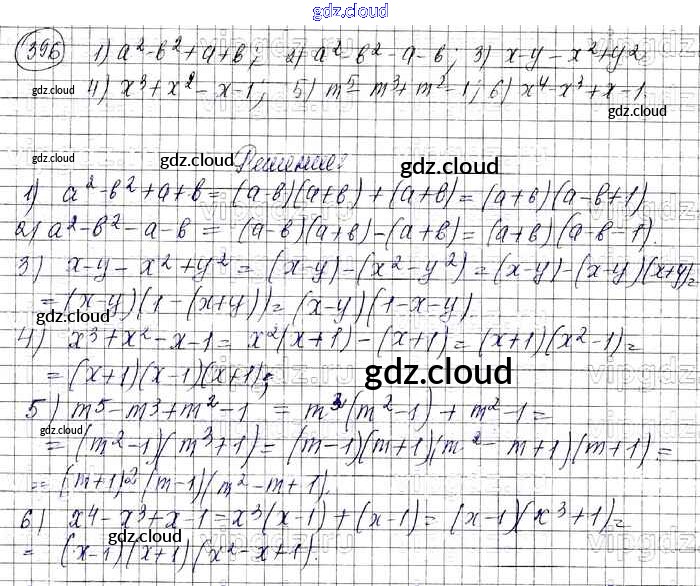 gdz.cloud
396 1) a²-b²+a+b; 2) a²-b²-a-b; 3) x-y-x²+y²
gdz.cloud 4) x³+x²-x-1; 5) m⁵-m³+m²-1; 6) x⁴-x³+x-1.
gdz.cloud
gdz.cloud Решение: gdz.cloud
1) a²-b²+a+b=(a-b)(a+b)+(a+b)=(a+b)(a-b+1)
2) a²-b²-a-b=(a-b)(a+b)-(a+b)=(a+b)(a-b-1).
3) x-y-x²+y²=(x-y)-(x²-y²)=(x-y)-(x-y)(x+y)=
=(x-y)(1-(x+y))=(x-y)(1-x-y)
gdz.cloud
4) x³+x²-x-1=x²(x+1)-(x+1)=(x+1)(x²-1)=
=(x+1)(x-1)(x+1);
gdz.cloud
5) m⁵-m³+m²-1=m³(m²-1)+m²-1=
gdz.cloud
=(m²-1)(m³+1)=(m-1)(m+1)(m²-m+1)(m+1)=
=(m+1)²(m-1)(m²-m+1).
gdz.cloud gdz.cloud
6) x⁴-x³+x-1=x³(x-1)+(x-1)=(x-1)(x³+1)=
=(x-1)(x+1)(x²-x+1).